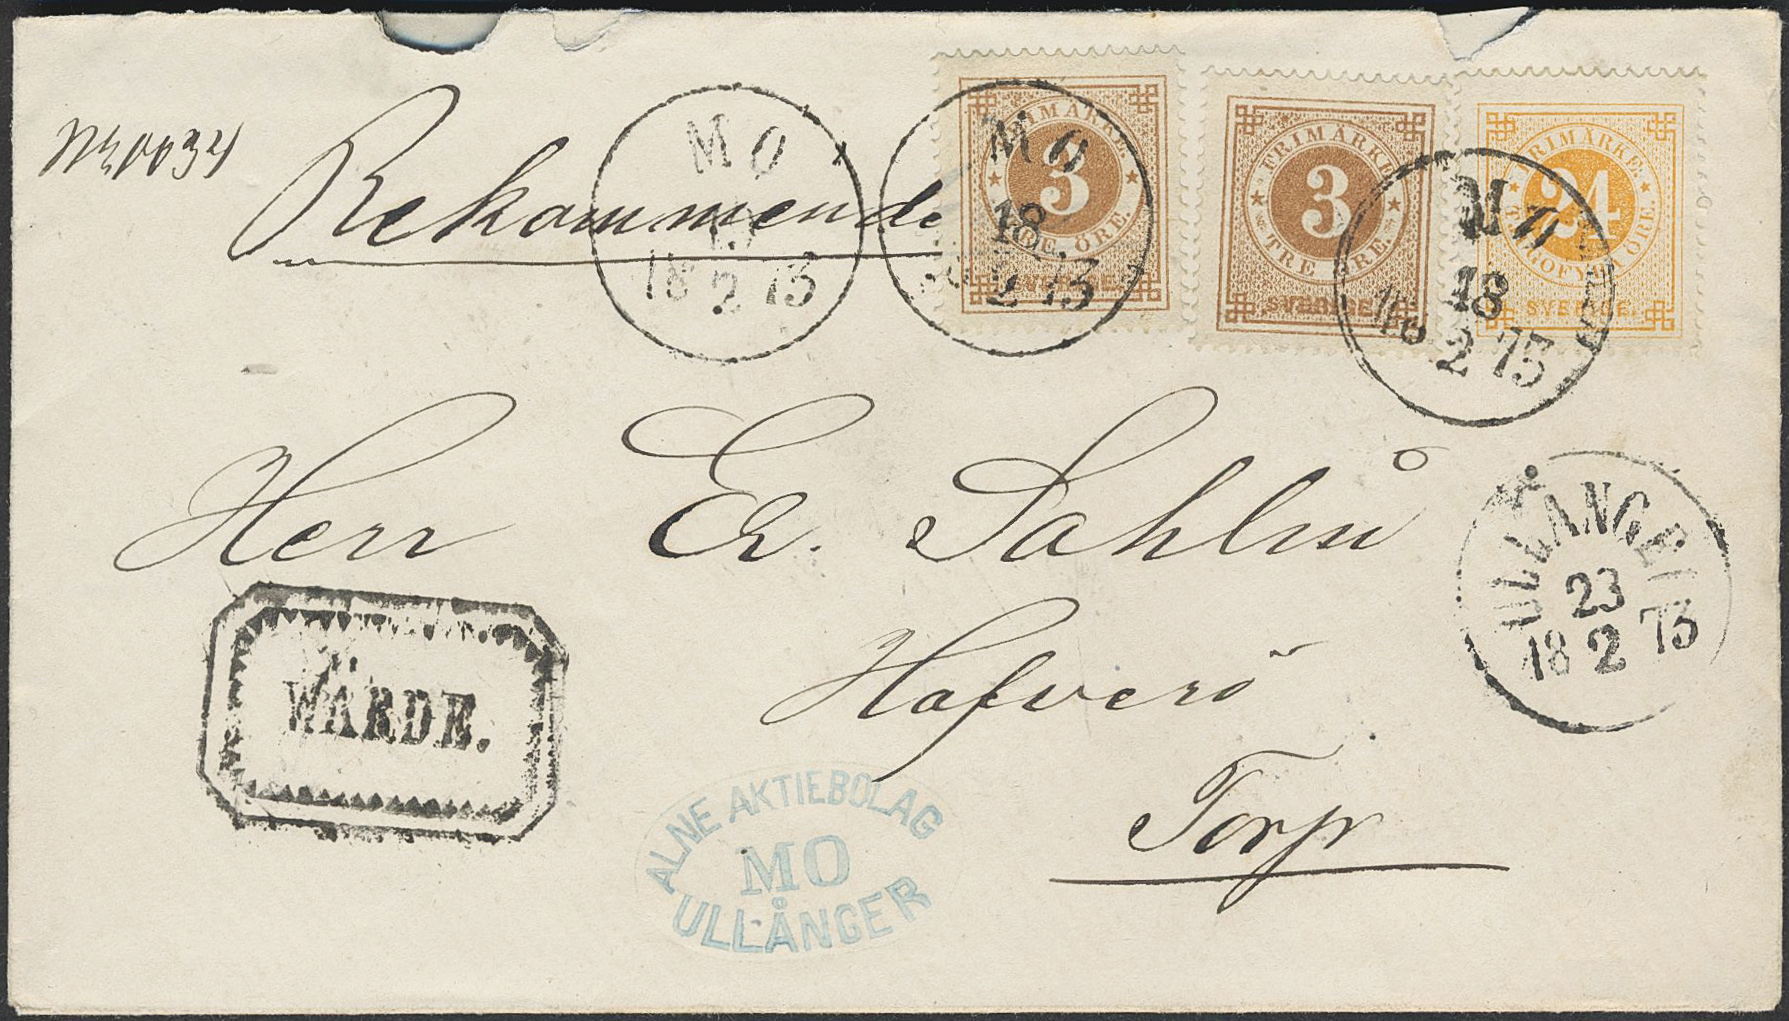 Rekommende
MO
18 2 73
MO
18
2 73
FRIMÄRKE.
3
TRE ÖRE.
SVERIGE.
FRIMÄRKE.
3
TRE ÖRE.
SVERIGE.
FRIMÄRKE.
24
TJUGOFYRA ÖRE.
SVERIGE.
MO
18
18 2 73
Herr Er. Sahlin
Hafverö
Torp
ULLÅNGER
23
18 2 73
WÄRDE.
ALNE AKTIEBOLAG
MO
ULLÅNGER